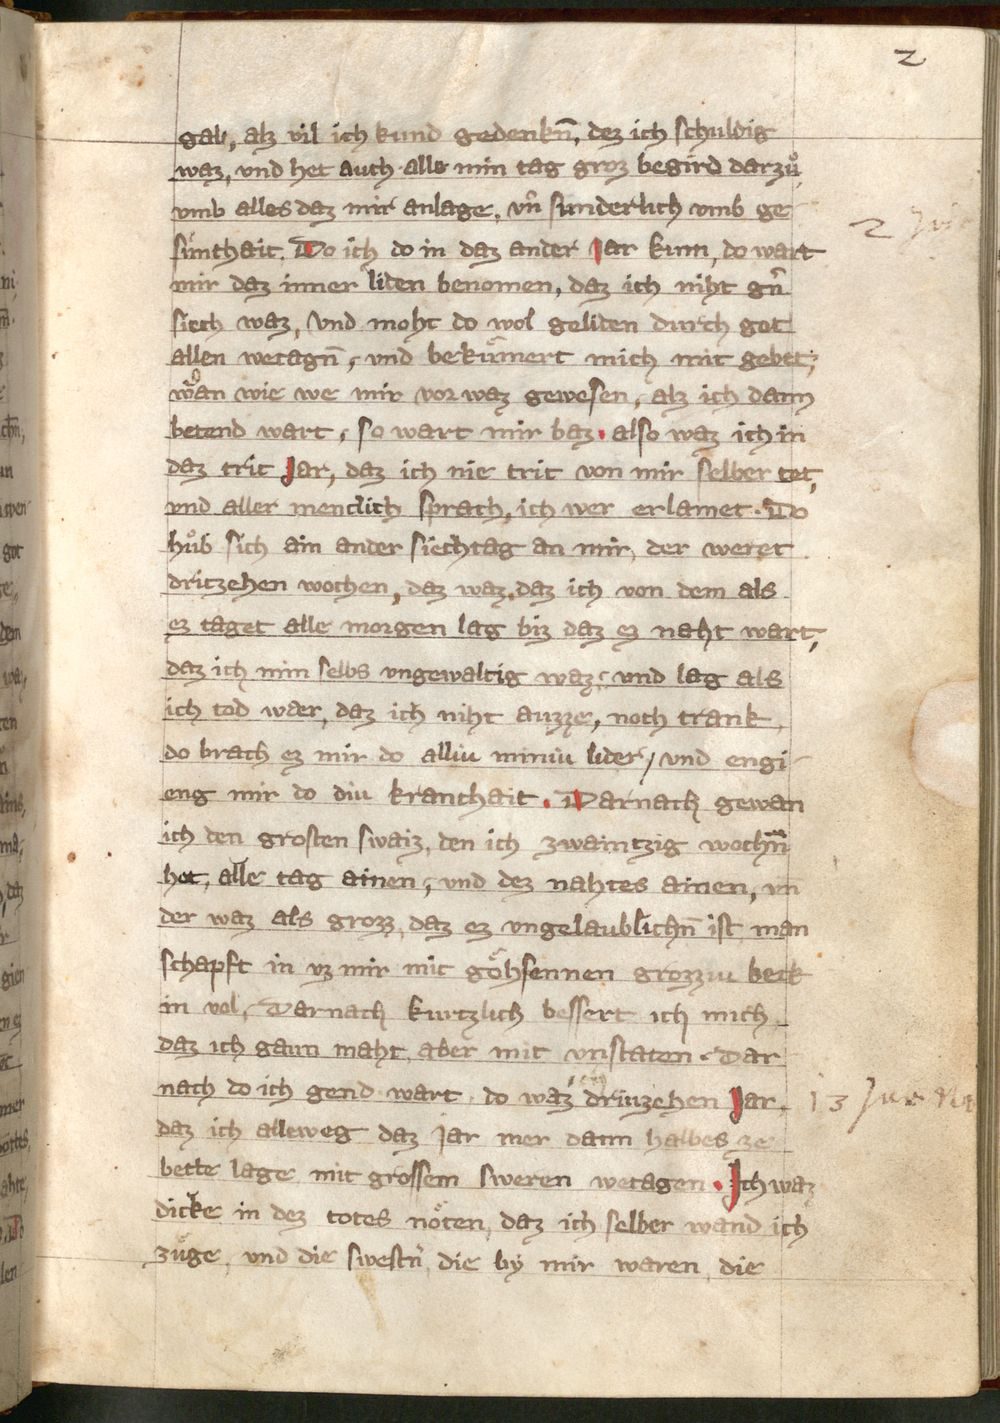 2
gab, alz vil ich kund gedenkn̄, dez ich schuldig
waz, vnd het auch alle min tag groz begird darzuͦ
vmb alles daz mir anlage, vn̄ sunderlich vmb ge
sunthait. Do ich do in daz ander Jar kum, do wart
mir daz inner liden benomen, daz ich niht gn̄
siech waz, Vnd moht do wol geliden durch got
allen wetagn̄, vnd bekuͤmert mich mit gebet,
wan wie we mir vor waz gewesen, alz ich dann
betend wart, so wart mir baz. also waz ich in
daz trit Jar, daz ich nie trit von mir selber tet,
vnd aller menclich sprach, ich wer erlamet. Do
huͦb sich ain ander siechtag an mir, der weret
dritzehen wochen, daz waz, daz ich von dem als
ez taget alle morgen lag biz daz ez naht wart,
daz ich min selbs vngewaltig waz, vnd lag als
ich tod waer, daz ich niht auzze, noch trank
do brach ez mir do alliu miniu lider, vnd engi
eng mir do diu kranchait. Darnach gewan
ich den grosten swaiz, den ich zwaintzig wochn̄
het, alle tag ainen, vnd dez nahtes ainen, vn
der waz als grozz, daz ez vngelaublichn̄ ist man
schapft in vz mir mit goͤhsennen grozziu bek
in vol, Darnach kurtzlich bessert ich mich
daz ich gaun maht, aber mit vnstaten. Dar
nach do ich gend wart, do waz ich driuzehen Jar.
13 Jar
daz ich alleweg daz Jar mer dann halbes ze
bette lage mit grossem sweren wetagen. Ich waz
dicke in dez totes noͤten, daz ich selber wand ich
zuͤge, vnd die swestn̄, die by mir waren, die